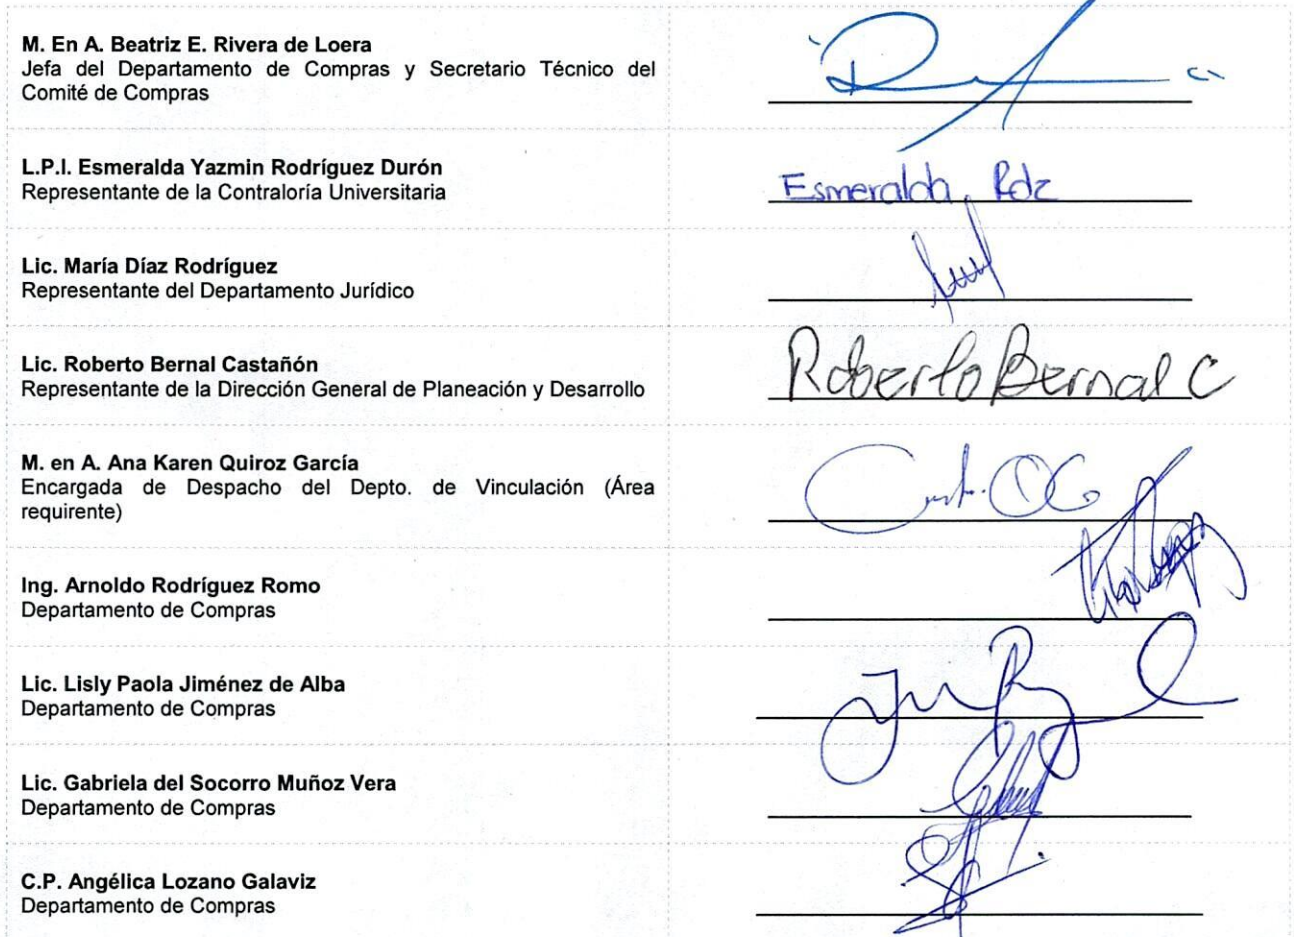 M. En A. Beatriz E. Rivera de Loera
Jefa del Departamento de Compras y Secretario Técnico del
Comité de Compras
L.P.I. Esmeralda Yazmin Rodríguez Durón
Representante de la Contraloría Universitaria
Esmeralda Rdz
Lic. María Díaz Rodríguez
Representante del Departamento Jurídico
Lic. Roberto Bernal Castañón
Representante de la Dirección General de Planeación y Desarrollo
Roberto Bernal C
M. en A. Ana Karen Quiroz García
Encargada de Despacho del Depto. de Vinculación (Área
requirente)
Ing. Arnoldo Rodríguez Romo
Departamento de Compras
Lic. Lisly Paola Jiménez de Alba
Departamento de Compras
Lic. Gabriela del Socorro Muñoz Vera
Departamento de Compras
C.P. Angélica Lozano Galaviz
Departamento de Compras